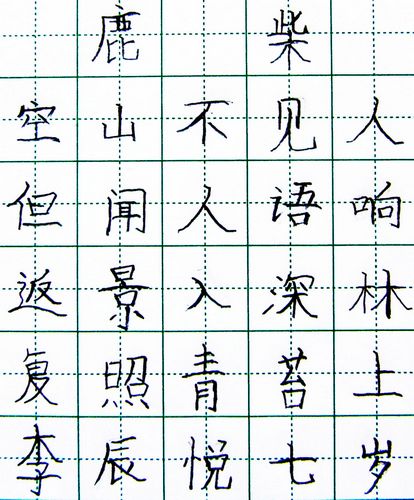 鹿柴
空山不见人
但闻人语响
返景入深林
复照青苔上
李辰悦七岁